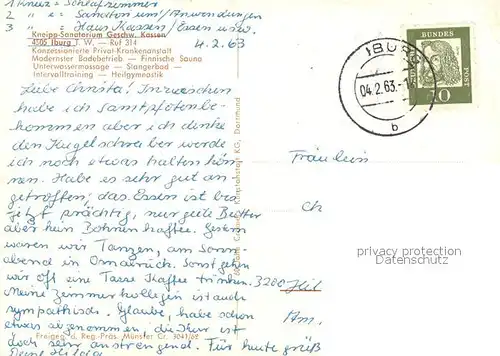 1 Kreuz = Schlafzimmer
2 " = Sanatorium/Anwendungen
3 " = Haus Kassen/Essen usw.
Kneipp-Sanatorium Geschw. Kassen
4505 Iburg T. W. — Ruf 314
4.2.63
Konzessionierte Privat-Krankenanstalt
Modernster Badebetrieb — Finnische Sauna
Unterwassermassage — Stangerbad —
Intervalltraining — Heilgymnastik
Liebe Christa! Inzwischen
habe ich Samtpfoten be-
kommen aber ich denke
den Kugelschreiber werde
ich noch etwas halten kön-
nen. Habe es sehr gut an-
getroffen; das Essen ist bis
jetzt prächtig, nur gute Butter
aber kein Bohnenkaffee. Gestern
waren wir Tanzen, am Sonn-
abend in Osnabrück. Sonst gehen
wir oft eine Tasse Kaffee trinken.
Meine Zimmerkollegen ist auch
sympathisch. Glaube, habe schon
etwas abgenommen, die Kur ist
doch sehr anstrengend. Für heute grüßt
Deine Hilda
Freigeg. d. Reg.-Präs. Münster Cr. 3041/62
KG, Dortmund
IBURG
04.2.63.-
b
DEUTSCHE
BUNDESPOST
10
Fräulein
Ch
3200 Hil
Am.
privacy protection
Datenschutz